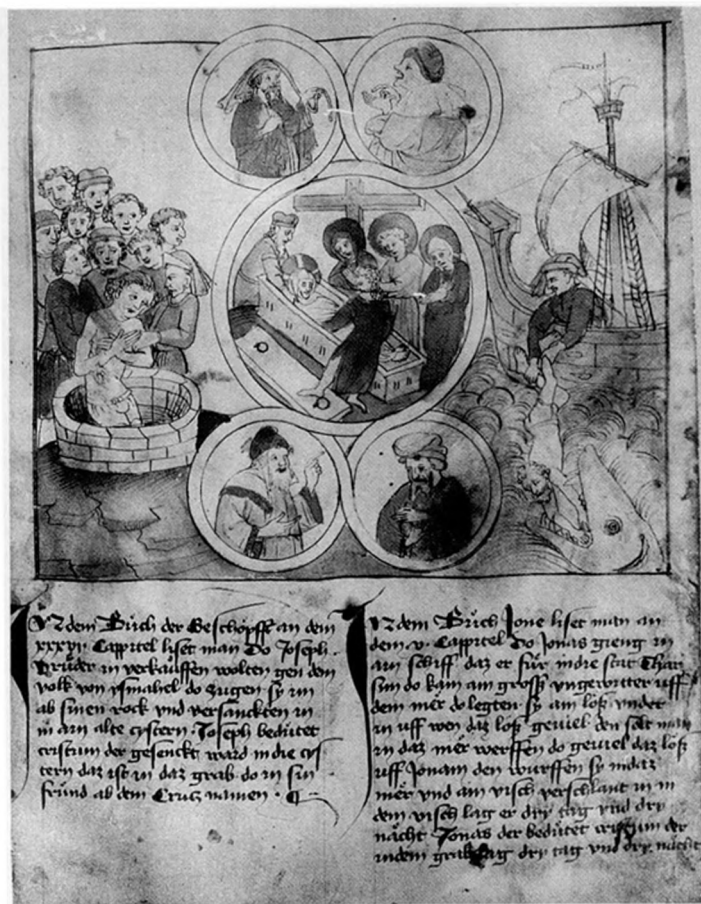 In dem Bůch der Geschöpff an dem
xxxvii Cappitel liset man Do Joseph
Brüder in verkauffen wolten gen dem
volk von ysmahel do zugen sy im
ab sinen rock vnd versanckten in
in ain alte cystern Joseph bedütet
cristum der gesenckt ward in die cys
tern daz ist in daz grab do in sin
fründ ab dem Crütz namen
In dem Bůch Jone liset man an
dem v Cappitel Do Jonas gieng in
ain schiff daz er für in die stat Thar
sim do kam ain gross vngewitter uff
dem mer do legten sy ain loss vnder
in uff wen daz loss geuiel den solt man
in daz mer werffen do geuiel daz loss
uff Jonam den wurffen sy in daz
mer vnd ain visch verschlant in in
dem visch lag er dry tag vnd dry
nächt Jonas der bedütet cristum der
in dem grab lag dry tag vnd dry nächt